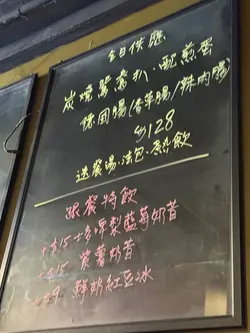 全日供應
炭燒鴛鴦扒·配煎蛋
德國腸(香草腸/辣肉腸)
$128
送餐湯·法包·熱飲
跟餐特飲
+$15 士多啤梨藍莓奶昔
+$15 紫薯奶昔
+$9 鮮奶紅豆冰